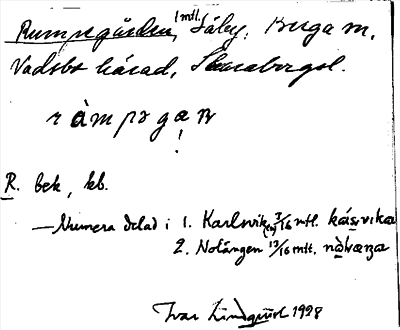 Rumpegården, 1 mtl. Säby, Berga sn,
Vadsbo härad, Skaraborgsl.
ràmpəgan
!
R. bek, kb.
— Numera delad i 1. Karlsvik(en) 3/16 mtl. kásvika
2. Notängen 13/16 mtl.
Ivar Lindquist 1928